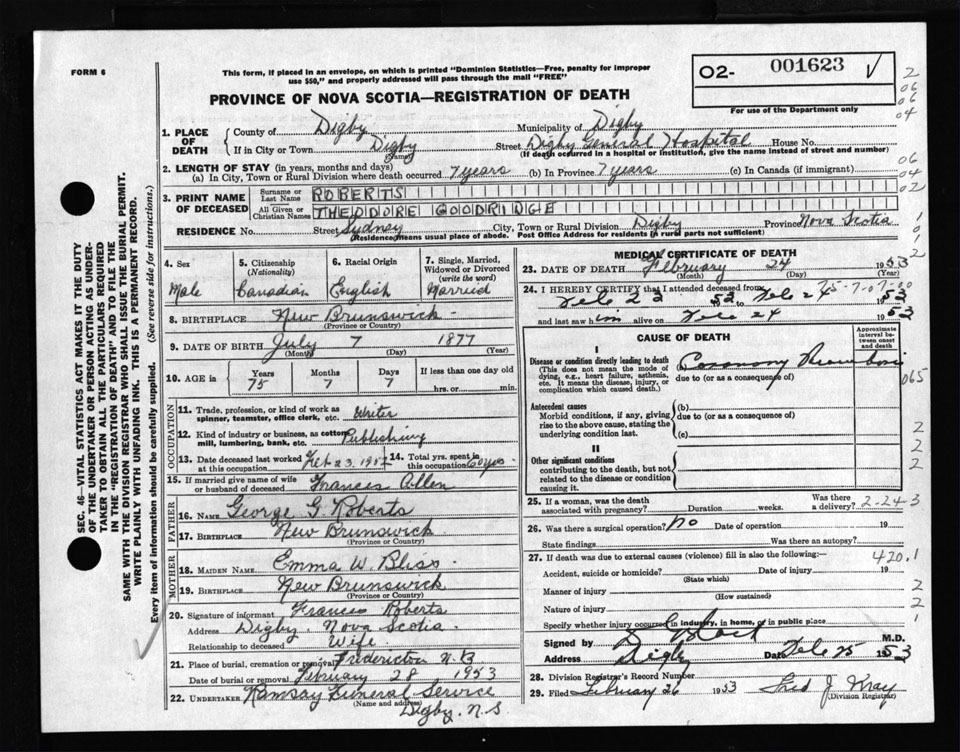 FORM 6
This form, if placed in an envelope, on which is printed "Dominion Statistics—Free, penalty for improper
use $50," and properly addressed will pass through the mail "FREE"
PROVINCE OF NOVA SCOTIA—REGISTRATION OF DEATH
O2- 001623
For use of the Department only
2
06
06
04
1. PLACE OF DEATH
County of Digby Municipality of Digby
If in City or Town Digby (Name) Street Digby General Hospital House No.
(If death occurred in a hospital or institution, give the name instead of street and number)
2. LENGTH OF STAY (in years, months and days)
(a) In City, Town or Rural Division where death occurred 7 years (b) In Province 7 years (c) In Canada (if immigrant)
06
04
02
3. PRINT NAME OF DECEASED
Surname or Last Name ROBERTS
All Given or Christian Names THEODORE GOODRIDGE
RESIDENCE No. Street Sydney City, Town or Rural Division Digby Province Nova Scotia
(Residence means usual place of abode. Post Office Address for residents in rural parts not sufficient)
4. Sex
Male
5. Citizenship
(Nationality)
Canadian
6. Racial Origin
English
7. Single, Married,
Widowed or Divorced
(write the word)
Married
8. BIRTHPLACE New Brunswick
(Province or Country)
9. DATE OF BIRTH July 7 1877
(Month) (Day) (Year)
10. AGE in Years Months Days If less than one day old
75 7 7 hrs. or min.
OCCUPATION
11. Trade, profession, or kind of work as
spinner, teamster, office clerk, etc. Writer
12. Kind of industry or business, as cotton
mill, lumbering, bank, etc. Publishing
13. Date deceased last worked
at this occupation Feb 23, 1952
14. Total yrs. spent in
this occupation 60 yrs
15. If married give name of wife
or husband of deceased Frances Allen
FATHER
16. NAME George G. Roberts
17. BIRTHPLACE New Brunswick
(Province or Country)
MOTHER
18. MAIDEN NAME Emma W. Bliss
19. BIRTHPLACE New Brunswick
(Province or Country)
20. Signature of informant Frances Roberts
Address Digby, Nova Scotia
Relationship to deceased Wife
21. Place of burial, cremation or removal Fredericton N.B
Date of burial or removal February 28 1953
22. UNDERTAKER Ramsay Funeral Service
(Name and address)
Digby, N.S.
MEDICAL CERTIFICATE OF DEATH
23. DATE OF DEATH February 24 1953
(Month) (Day) (Year)
24. I HEREBY CERTIFY that I attended deceased from
75-7-07-00
Feb 23 53 to Feb 24 1953
and last saw him alive on Feb 24 1953
CAUSE OF DEATH
Approximate
interval between
onset
and death
I
Disease or condition directly leading to death
(This does not mean the mode of
dying, e.g., heart failure, asthenia,
etc. It means the disease, injury, or
complication which caused death.)
Coronary Thrombosis
due to (or as a consequence of)
065
Antecedent causes
Morbid conditions, if any, giving
rise to the above cause, stating the
underlying condition last.
(b)
due to (or as a consequence of)
(c)
II
Other significant conditions
contributing to the death, but not
related to the disease or condition
causing it.
2
2
2
25. If a woman, was the death
associated with pregnancy? Duration weeks. Was there a delivery? 2-24-3
26. Was there a surgical operation? No Date of operation 19
State findings Was there an autopsy?
27. If death was due to external causes (violence) fill in also the following:
420.1
Accident, suicide or homicide? Date of injury 19
(State which)
Manner of injury
(How sustained)
Nature of injury
2
2
1
Specify whether injury occurred in industry, in home, or in public place
Signed by M.D.
Address Digby Date Feb 25 1953
28. Division Registrar's Record Number
29. Filed February 26 1953 Fred J. Kray
(Division Registrar)
SEC. 46—VITAL STATISTICS ACT MAKES IT THE DUTY
OF THE UNDERTAKER OR PERSON ACTING AS UNDER-
TAKER TO OBTAIN ALL THE PARTICULARS REQUIRED
IN THE "REGISTRATION OF DEATH" AND TO FILE THE
SAME WITH THE DIVISION REGISTRAR WHO SHALL ISSUE THE BURIAL PERMIT.
WRITE PLAINLY WITH UNFADING INK. THIS IS A PERMANENT RECORD.
Every item of information should be carefully supplied. (See reverse side for instructions.)